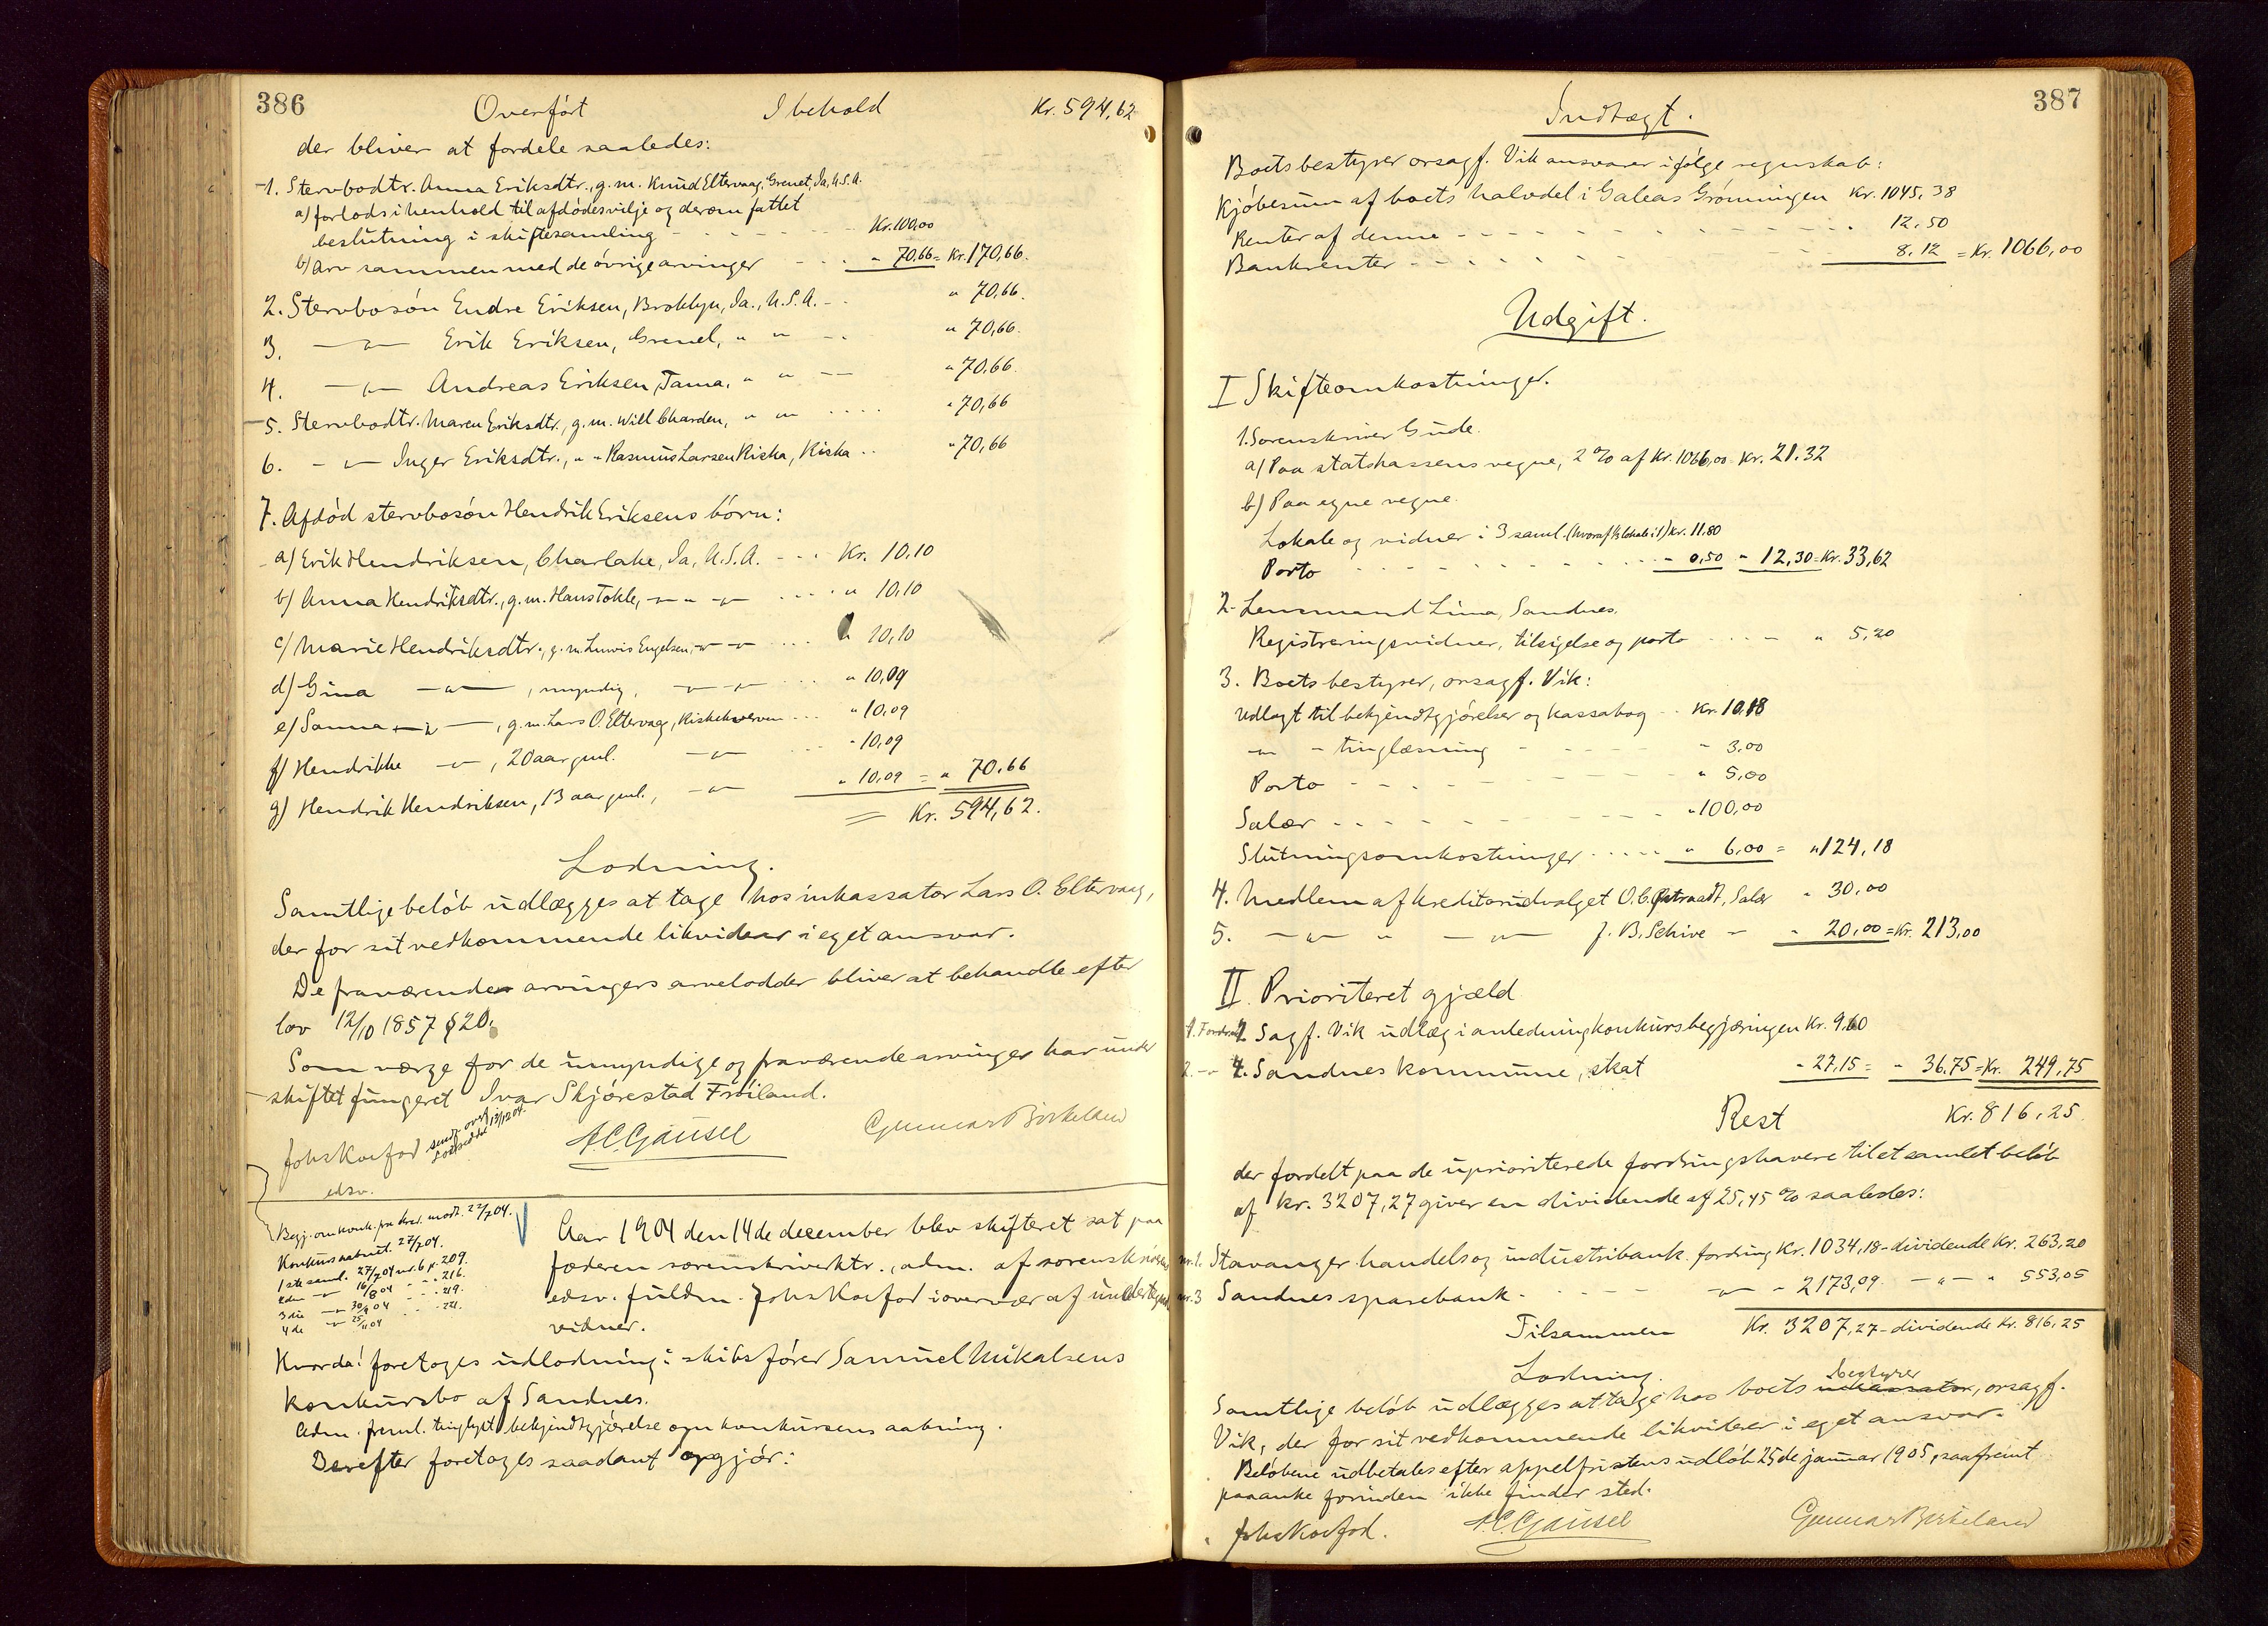 386
Overført I behold Kr. 594,62
der bliver at fordele saaledes:
1. Stervbodtr. Anna Eriksdtr., g. m. Knud Eltervaag, Grenet, Ia, U.S.A.
a) forlods i henhold til afdødes vilje og derom fattet
beslutning i skiftesamling - - - - - Kr. 100,00
b) Arv sammen med de øvrige arvinger - - - " 70,66 = Kr. 170,66.
2. Stervbosøn Endre Eriksen, Broklyn, Ia., U.S.A. - - " 70,66.
3. —"— Erik Eriksen, Grenel, " " - - " 70,66.
4. —"— Andreas Eriksen, Tama, " " — " 70,66.
5. Stervbodtr. Maren Eriksdtr., g. m. Will Charden, " " .... " 70,66
6. - "— Inger Eriksdtr., " " Rasmus Larsen Riska, Riska .. " 70,66
7. Afdød stervbosøn Hendrik Eriksens børn:
a) Erik Hendriksen, Charlake, Ia, U.S.A. - - - Kr. 10,10
b) Anna Hendriksdtr., g. m. Hans Tokle, —"— " —"— .... " 10,10
c) Marie Hendriksdtr., g. m. Luvis Engelsen, —"— —"— .... " 10,10
d) Gina —"—, myndig, —"— —"— ... " 10,09
e) Sanna —"—, g. m. Lars O. Eltervag, Riskekverven ... " 10,09
f) Hendrikke —"—, 20 aar gml. —"— ... " 10,09
g) Hendrik Hendriksen, 13 aar gml., —"— " 10,09 = " 70,66
= Kr. 594,62.
Lodning.
Samtlige beløb udlægges at tage hos inkassator Lars O. Eltervaag,
der for sit vedkommende likviderer i eget ansvar.
De fraværende arvingers arvelodder bliver at behandle efter
lov 12/10 1857 § 20.
Som værge for de umyndige og fraværende arvinger har under
skiftet fungeret Ivar Skjørestad Frøiland.
Johs Koefod A. C. Gausel Gunnar Birkeland
edsv.
sendt overf.
Lodsedde 13/12 04.
Begj. om konk. fra kred. modt. 22/7 04.
Konkurs aabnet. 27/7 04.
1ste saml. 27/7 04 nr. 6 p. 209.
2den —"— 16/8 04 - - - 216.
3die —"— 30/9 04 - - - 219.
4de —"— 25/11 04 - - - 221.
Aar 1904 den 14de december blev skifteret sat paa
Jæderen sorenskriverktr., adm. af sorenskriverens
edsv. fuldm. Johs Koefod i overvær af undertegnede
vidner.
Hvorda! foretoges udlodning i skibsfører Samuel Mikalsens
konkursbo af Sandnes.
Adm. freml. tinglyst bekjendtgjørelse om konkursens aabning.
Derefter foretoges saadant opgjør:
387
Indtægt.
Boets bestyrer orsagf. Vik ansvarer ifølge regnskab:
Kjøbesum af boets halvdel i Galeas Grønningen Kr. 1045,38
Renter af denne - - - - - - - - - 12,50
Bankrenter - - - - - - - 8,12 = Kr. 1066,00
Udgift.
I Skifteomkostninger.
1. Sorenskriver Gude.
a) Paa statskassens vegne, 2 % af Kr. 1066,00 Kr. 21.32
b) Paa egne vegne.
Lokale og vidner i 3 saml. (hvoraf lokale i 1) Kr. 11.80
Porto - - - - - - - - - " 0,50 " 12,30 = Kr. 33,62
2. Lensmand Lima, Sandnes.
Registreringsvidner, tilsigelse og porto - - - - " 5,20
3. Boets bestyrer, orsagf. Vik:
Udlagt til bekjendtgjørelser og kassabog - - Kr. 10.18
—"— - tinglæsning - - - - - " 3,00
Porto - - - - - - - - - " 5,00
Salær - - - - - - - - - " 100,00
Slutningsomkostninger ..... " 6,00 = " 124,18
4. Medlem af kreditorudvalget O. C. Østraadt, Salær " 30,00
5. —"— " —"— J. B. Schive - " 20,00 = Kr. 213,00
II. Prioriteret gjæld
1. Fordr. 2. Sagf. Vik udlæg i anledning konkursbegjæringen Kr. 9,60
2. —"— 4. Sandnes kommune, skat " 27,15 = " 36,75 = Kr. 249,75
Rest Kr. 816,25
der fordelt paa de uprioriterede fordringshavere til et samlet beløb
af Kr. 3207,27 giver en dividende af 25,45 % saaledes:
nr. 1. Stavanger handels og industribank. fordring Kr. 1034,18 - dividende Kr. 263,20
nr. 3 Sandnes sparebank - - - - —"— " 2173,09. —"— " 553,05
Tilsammen Kr. 3207,27 - dividende Kr. 816,25
Lodning.
Samtlige beløb udlægges at tage hos boets inkassator bestyrer, orsagf.
Vik, der for sit vedkommende likviderer i eget ansvar.
Beløbene udbetales efter appelfristens udløb 25de januar 1905, saafremt
paaanke forinden ikke finder sted.
Johs Koefod. A. C. Gausel Gunnar Birkeland